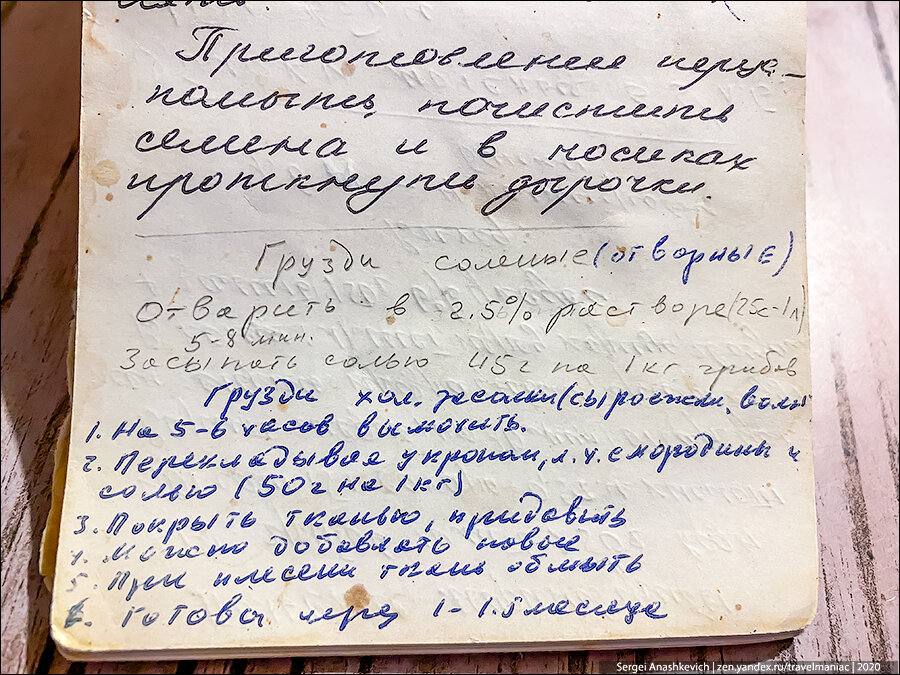 Приготовление перца-
помыть, почистить
семена и в носиках
проткнуть дырочки.
Грузди соленые (отворные)
Отварить в 2.5% растворе (25г-1л)
5-8 мин.
Засыпать солью 45г на 1кг грибов
Грузди хол. засолки (сыроежки, волн
1. На 5-6 часов вымочить.
2. Перекладывая укропом, л.ч. смородины и
солью (50г на 1кг)
3. Покрыть тканью, придавить
4. Можно добавлять новые
5. При плесени ткань обмыть
6. Готовы через 1-1.5 месяца
Sergei Anashkevich | zen.yandex.ru/travelmaniac | 2020